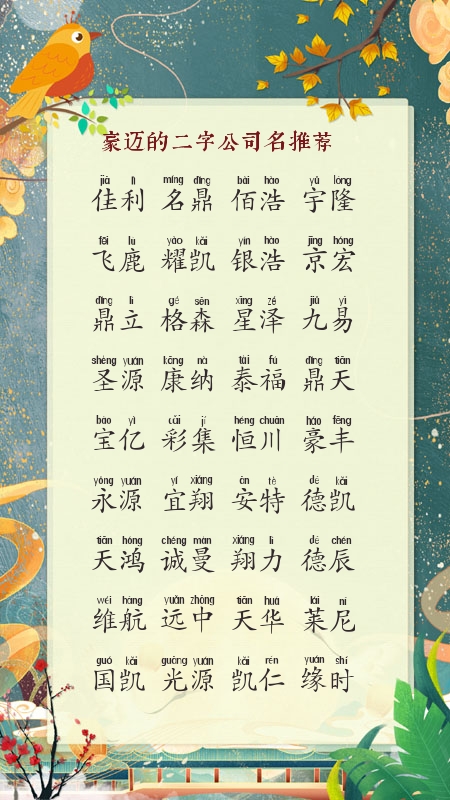 豪迈的二字公司名推荐
jiā lì míng dǐng bǎi hào yǔ lóng
佳利 名鼎 佰浩 宇隆
fēi lù yào kǎi yín hào jīng hóng
飞鹿 耀凯 银浩 京宏
dǐng lì gé sēn xīng zé jiǔ yì
鼎立 格森 星泽 九易
shèng yuán kāng nà tài fú dǐng tiān
圣源 康纳 泰福 鼎天
bǎo yì cǎi jí héng chuān háo fēng
宝亿 彩集 恒川 豪丰
yǒng yuán yí xiáng ān tè dé kǎi
永源 宜翔 安特 德凯
tiān hóng chéng màn xiáng lì dé chén
天鸿 诚曼 翔力 德辰
wéi háng yuǎn zhōng tiān huá lái ní
维航 远中 天华 莱尼
guó kǎi guāng yuán kǎi rén yuán shí
国凯 光源 凯仁 缘时